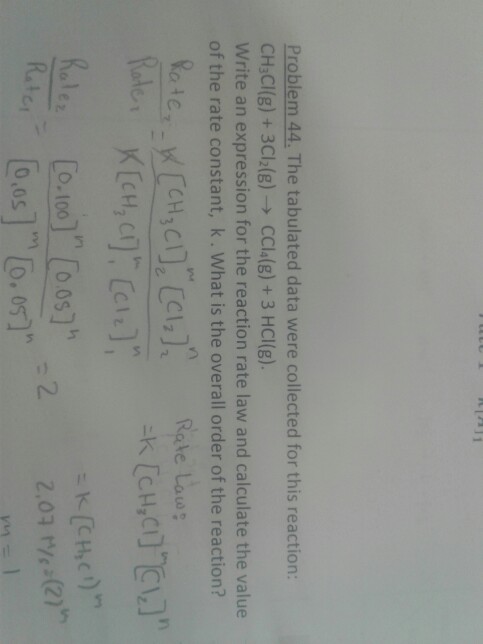 Problem 44. The tabulated data were collected for this reaction:
CH₃Cl(g) + 3Cl₂(g) → CCl₄(g) + 3 HCl(g).
Write an expression for the reaction rate law and calculate the value
of the rate constant, k. What is the overall order of the reaction?
Rate₂ = K [CH₃Cl]₂ᵐ [Cl₂]₂ⁿ
Rate₁ K [CH₃Cl]₁ᵐ [Cl₂]₁ⁿ
Rate Law:
= K [CH₃Cl]ᵐ [Cl₂]ⁿ
Rate₂ = [0.100]ᵐ [0.05]ⁿ = 2
Rate₁ [0.05]ᵐ [0.05]ⁿ
= K [CH₃Cl]ᵐ
m = 1